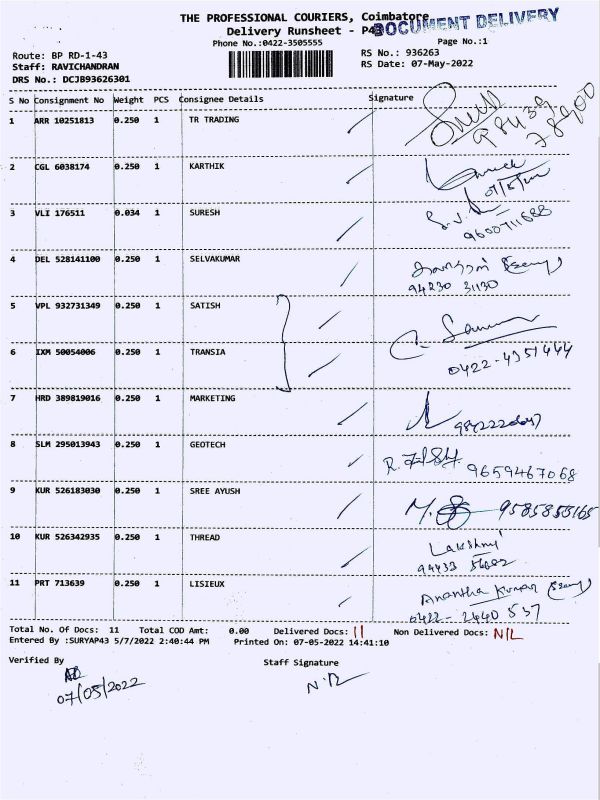 THE PROFESSIONAL COURIERS, Coimbatore
Delivery Runsheet - P4
DOCUMENT DELIVERY
Phone No.:0422-3505555
Page No.:1
Route: BP RD-1-43
RS No.: 936263
Staff: RAVICHANDRAN
RS Date: 07-May-2022
DRS No.: DCJB93626301
S No Consignment No Weight PCS Consignee Details Signature
1 ARR 10251813 0.250 1 TR TRADING
2 CGL 6038174 0.250 1 KARTHIK
3 VLI 176511 0.034 1 SURESH
9600711688
4 DEL 528141100 0.250 1 SELVAKUMAR
94230 31130
5 VPL 932731349 0.250 1 SATISH
6 IXM 50054006 0.250 1 TRANSIA
0422-4351444
7 HRD 389819016 0.250 1 MARKETING
8 SLM 295013943 0.250 1 GEOTECH
9659467068
9 KUR 526183030 0.250 1 SREE AYUSH
9585858165
10 KUR 526342935 0.250 1 THREAD
Lakshmi
11 PRT 713639 0.250 1 LISIEUX
Anantha Kumar
0422- 2440 537
Total No. Of Docs: 11 Total COD Amt: 0.00 Delivered Docs: 11 Non Delivered Docs: NIL
Entered By :SURYAP43 5/7/2022 2:40:44 PM Printed On: 07-05-2022 14:41:10
Verified By Staff Signature
07/05/2022